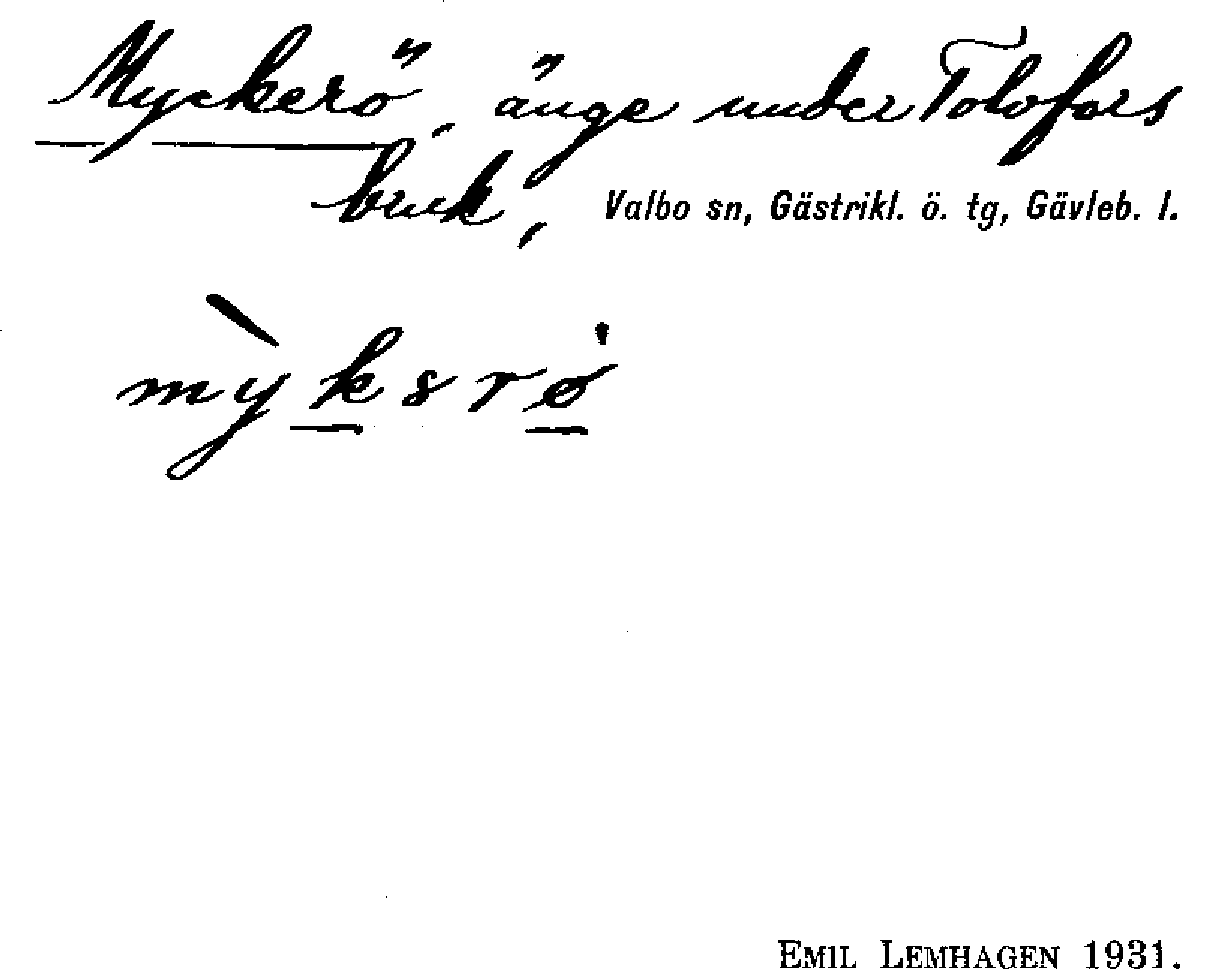 Myckerö, änge under Tolvfors
bruk, Valbo sn, Gästrikl. ö. tg, Gävleb. l.
mỳksrø̍
EMIL LEMHAGEN 1931.